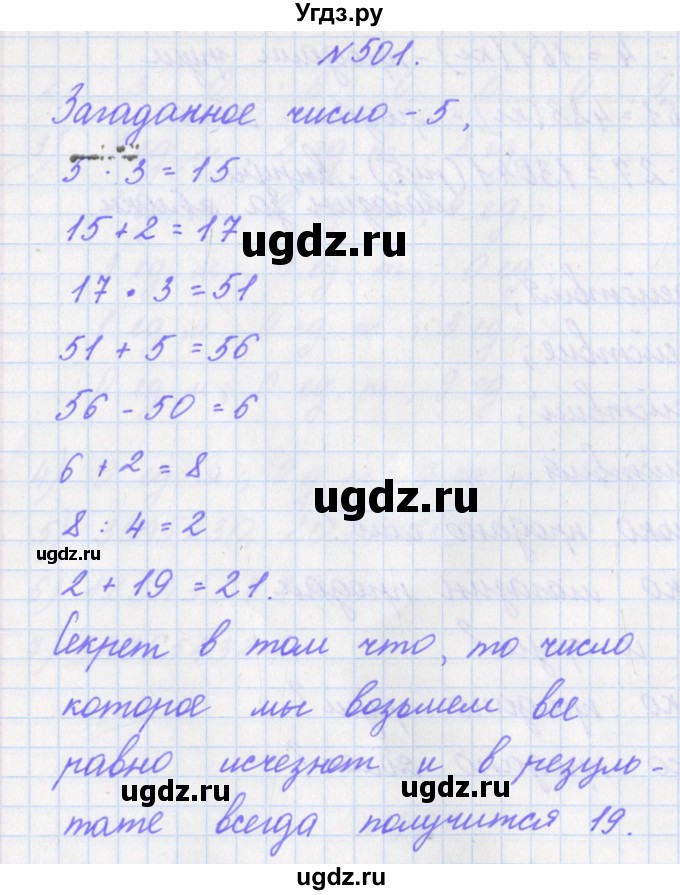 Угдз.ру
№501.
Загаданное число - 5,
5 · 3 = 15
15 + 2 = 17
ugdz.ru
17 · 3 = 51
51 + 5 = 56
56 - 50 = 6
6 + 2 = 8
ugdz.ru
8 : 4 = 2
ugdz.ru
2 + 19 = 21.
Секрет в том что, то число
которое мы возьмем все
равно исчезнют и в резуль-
ugdz.ru ugdz.ru
тате всегда получится 19.
ugdz.ru